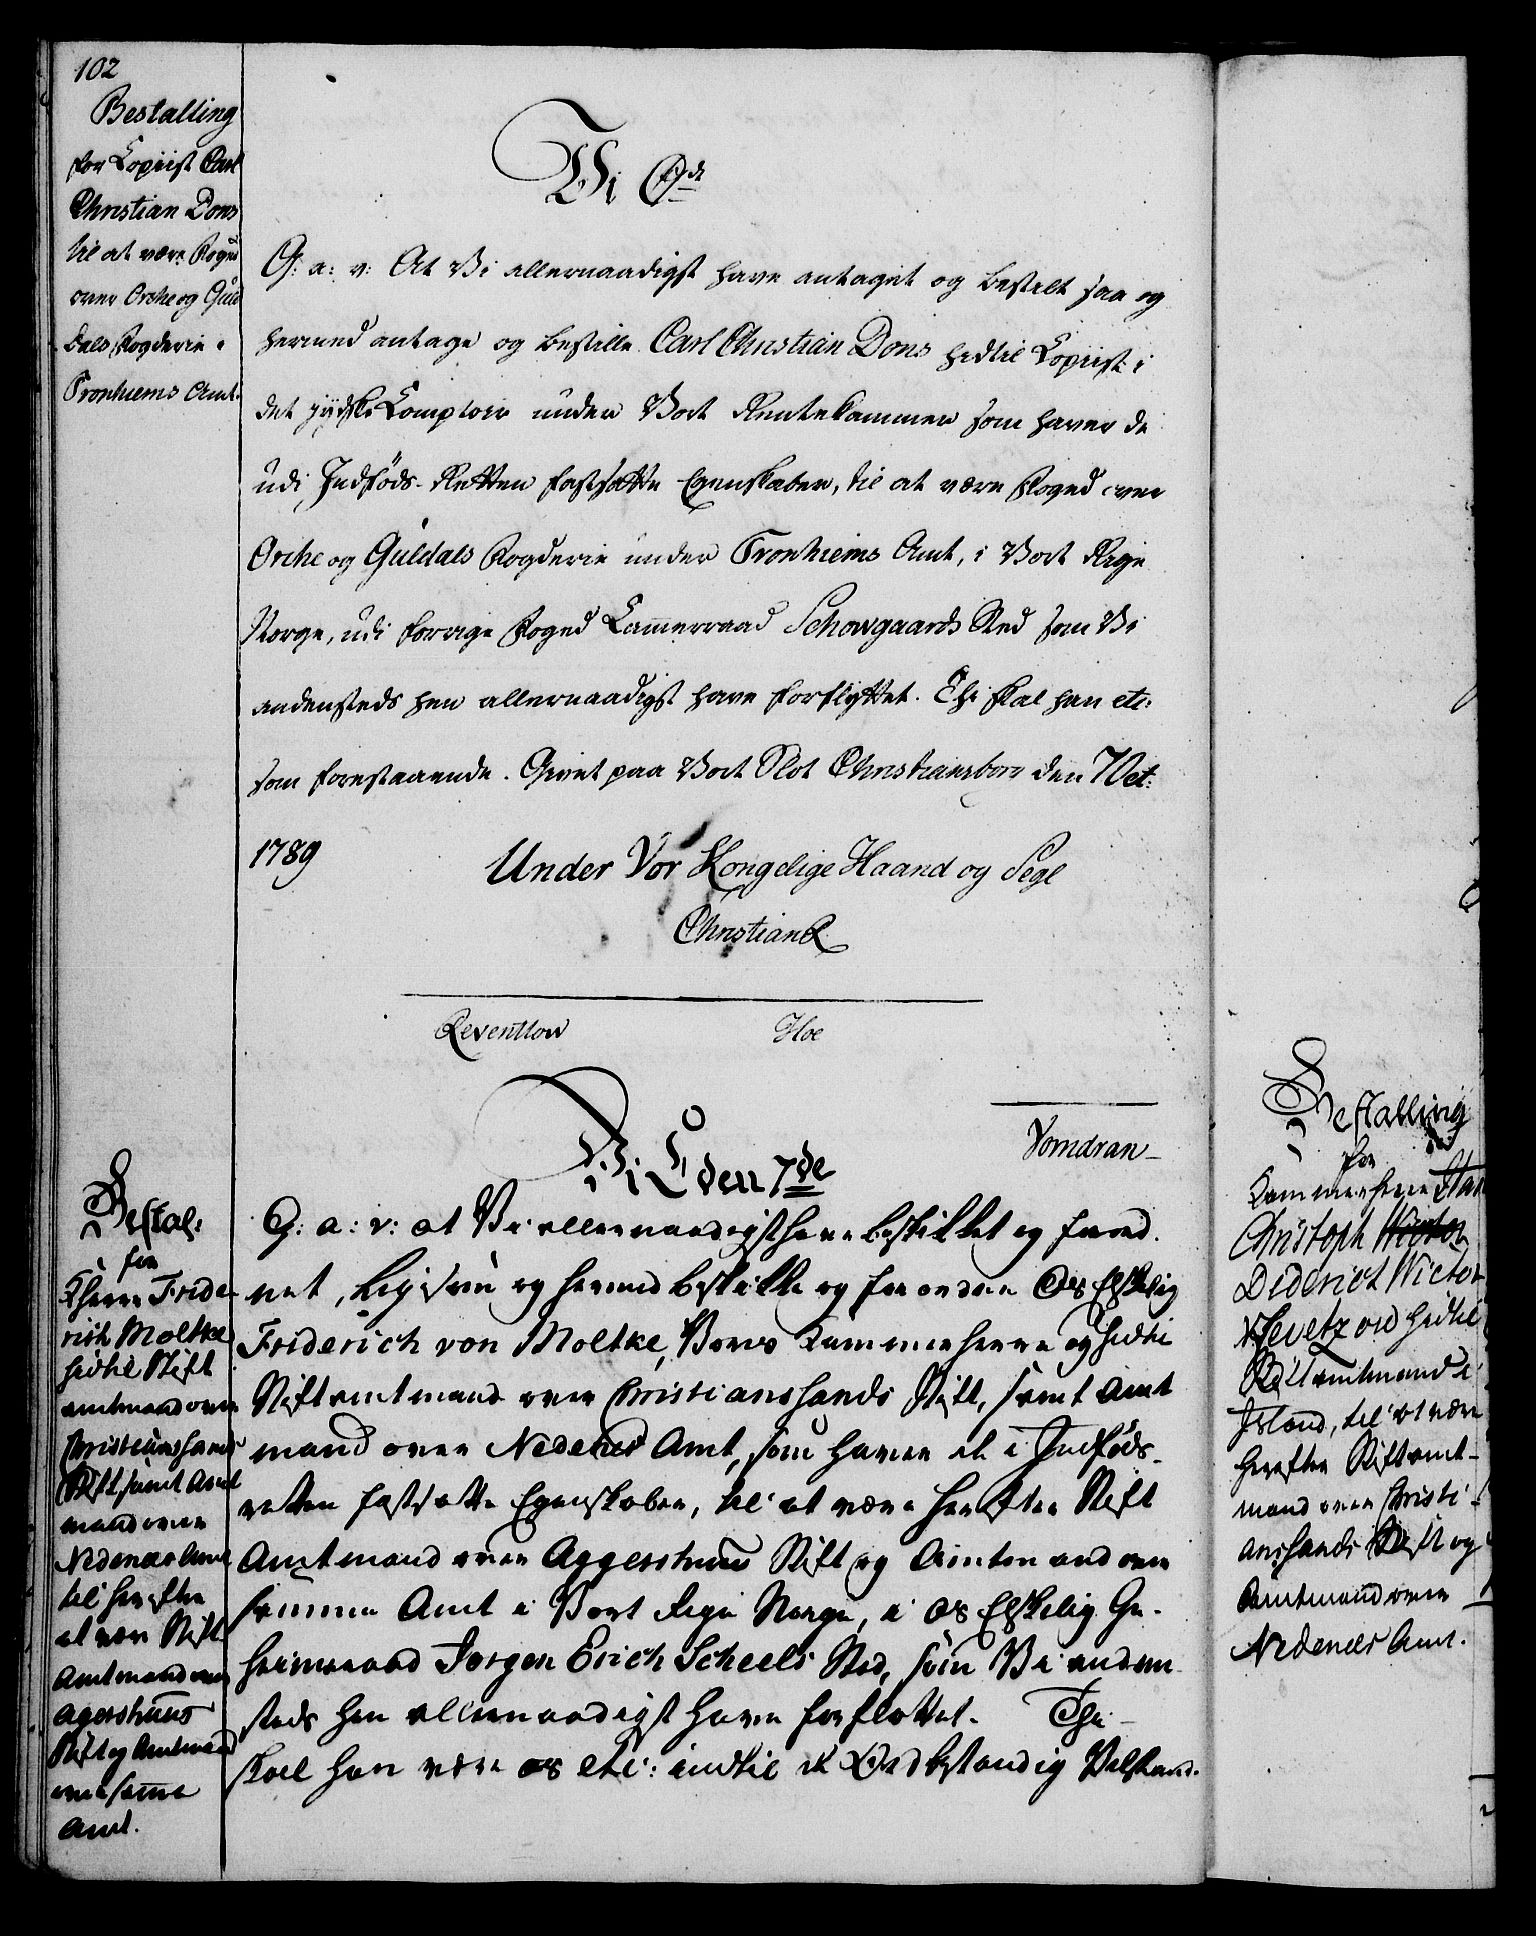 102
Bestalling
for Copiist Carl
Christian Dons
til at være Foged
over Orche og Guld
dals Fogderie i
Tronhiems Amt.
Vi C 7de
G: a: v: At Vi allernaadigst have antaget og bestilt saa og
hermed antage og bestille Carl Christian Dons hidtil Copiist i
det jydske Comptoir under Vort Rentekammer som haver de
udi Indføds-Retten fastsatte Egenskaber, til at være Foged over
Orche og Guldals Fogderie under Tronhiems Amt, i Vort Rige
Norge, udi forrige Foged Cammerraad Schowgaards Sted som Vi
andensteds hen allernaadigst have forflyttet. Thi skal han etc:
som forestaaende. Givet paa Vort Slot Christiansborg den 7 Oct:
1789
Under Vor Kongelige Haand og Segl
Christian R.
Reventlow Hoe
Vomdran
Vi C den 7de
Bestal:
for
Kherre Fride-
rich Moltke
hidtil Stift
amtmand over
Christianssands
Stift samt Amt
mand over
Nedenes Amt
til herefter
at være Stift
Amtmand over
Agershuus
Stift og Amtmand
over samme
Amt.
G: a: v: at Vi allernaadigst have beskikket og forord.
net, ligesom og hermed beskikke og forordne Os Elskelig
Friderich von Moltke, Vores Kammerherre og hidtil
Stiftamtmand over Christianssands Stift, samt Amt
mand over Nedenes Amt, som haver de i Indføds-
retten fastsatte Egenskaber, til at være herefter Stift
Amtmand over Aggershuus Stift og Amtmand over
samme Amt i Vort Rige Norge, i Os Elskelig Ge-
heimeraad Jørgen Erich Scheels Sted, som Vi anden-
steds hen allernaadigst have forfløttet. Thi
skal han være os etc: indtil et Ord bestandig Velstand.
Bestalling
for
Kammerherre
Christoph
Diderich Victor
Levetzow hidtil
Stiftamtmand i
Island, til at være
herefter Stiftamt-
mand over Christi-
anssands Stift og
Amtmand over
Nedenes Amt.